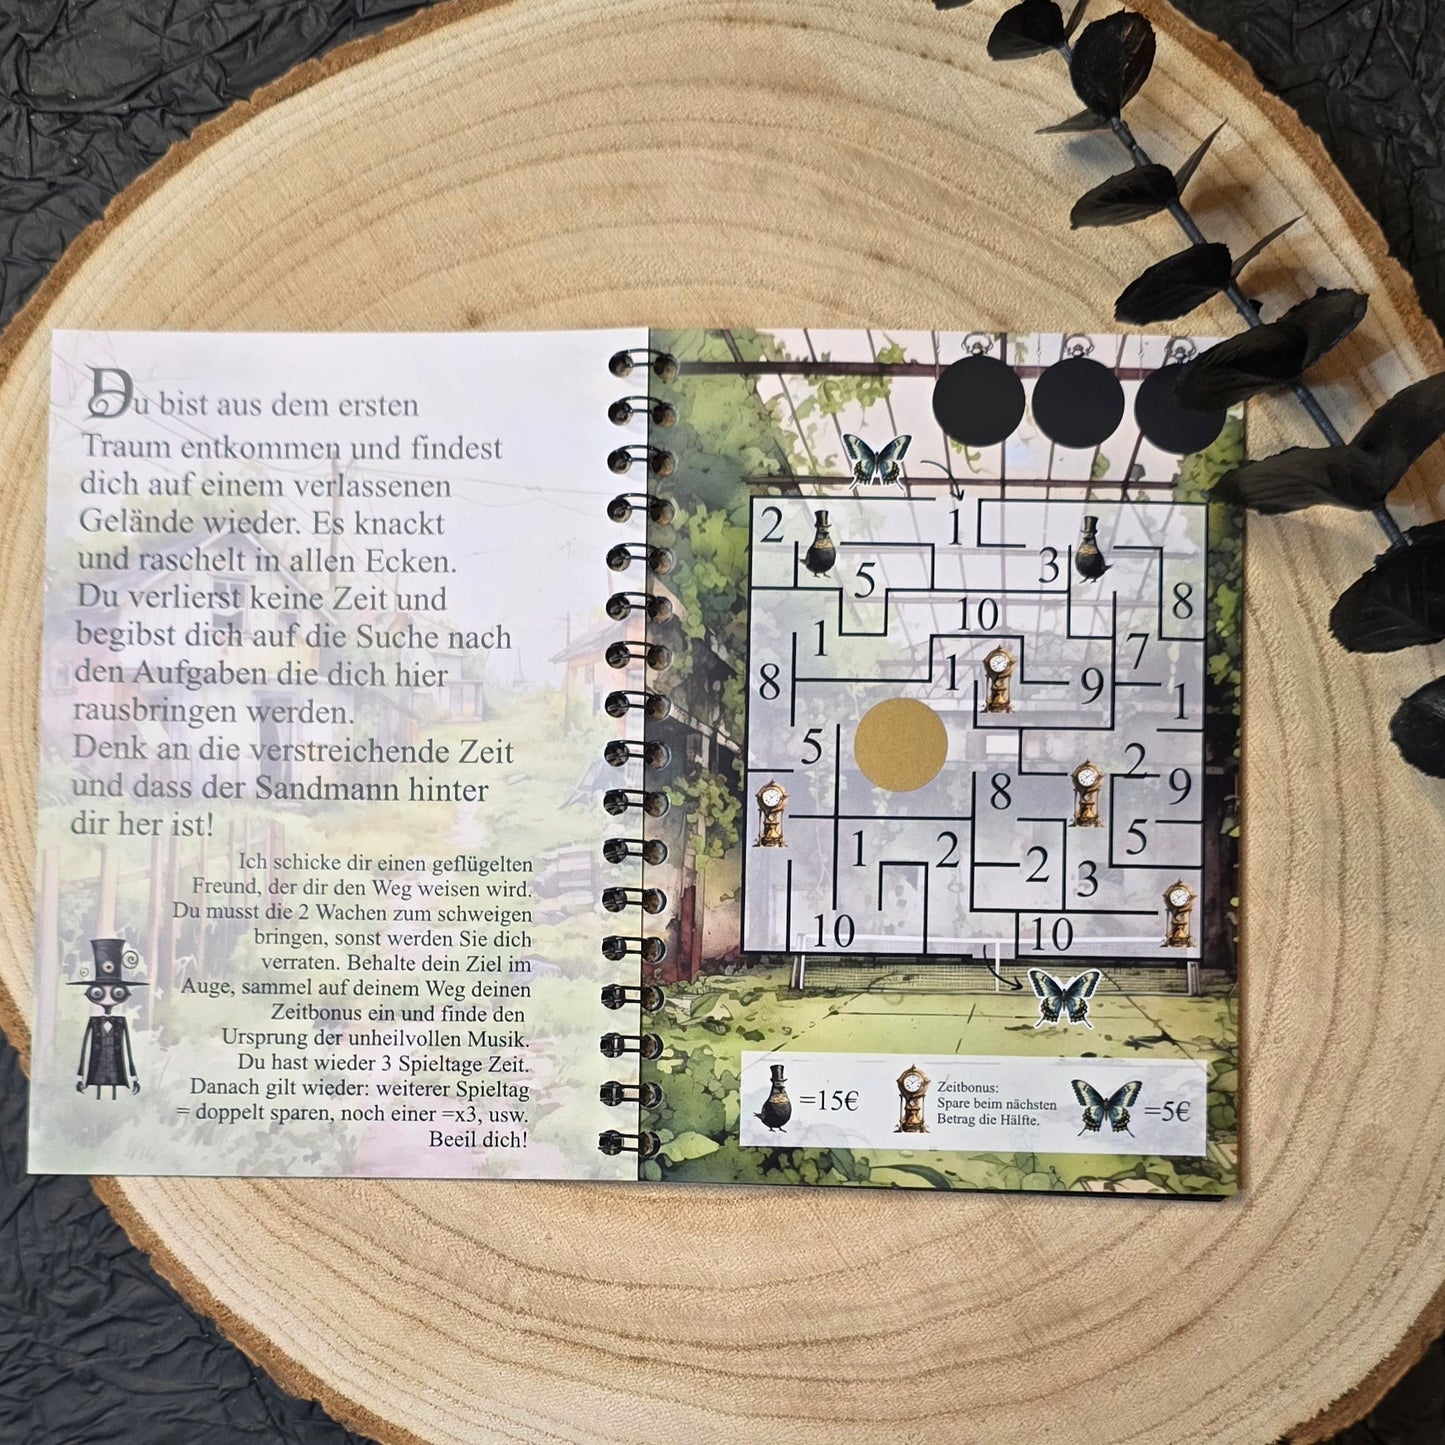 Du bist aus dem ersten
Traum entkommen und findest
dich auf einem verlassenen
Gelände wieder. Es knackt
und raschelt in allen Ecken.
Du verlierst keine Zeit und
begibst dich auf die Suche nach
den Aufgaben die dich hier
rausbringen werden.
Denk an die verstreichende Zeit
und dass der Sandmann hinter
dir her ist!
Ich schicke dir einen geflügelten
Freund, der dir den Weg weisen wird.
Du musst die 2 Wachen zum schweigen
bringen, sonst werden Sie dich
verraten. Behalte dein Ziel im
Auge, sammel auf deinem Weg deinen
Zeitbonus ein und finde den
Ursprung der unheilvollen Musik.
Du hast wieder 3 Spieltage Zeit.
Danach gilt wieder: weiterer Spieltag
= doppelt sparen, noch einer =x3, usw.
Beeil dich!
2 1
5 3 8
1 10 7
8 1 9 1
5 2
8 9
1 2 2 5
3
10 10
=15€
Zeitbonus:
Spare beim nächsten
Betrag die Hälfte.
=5€